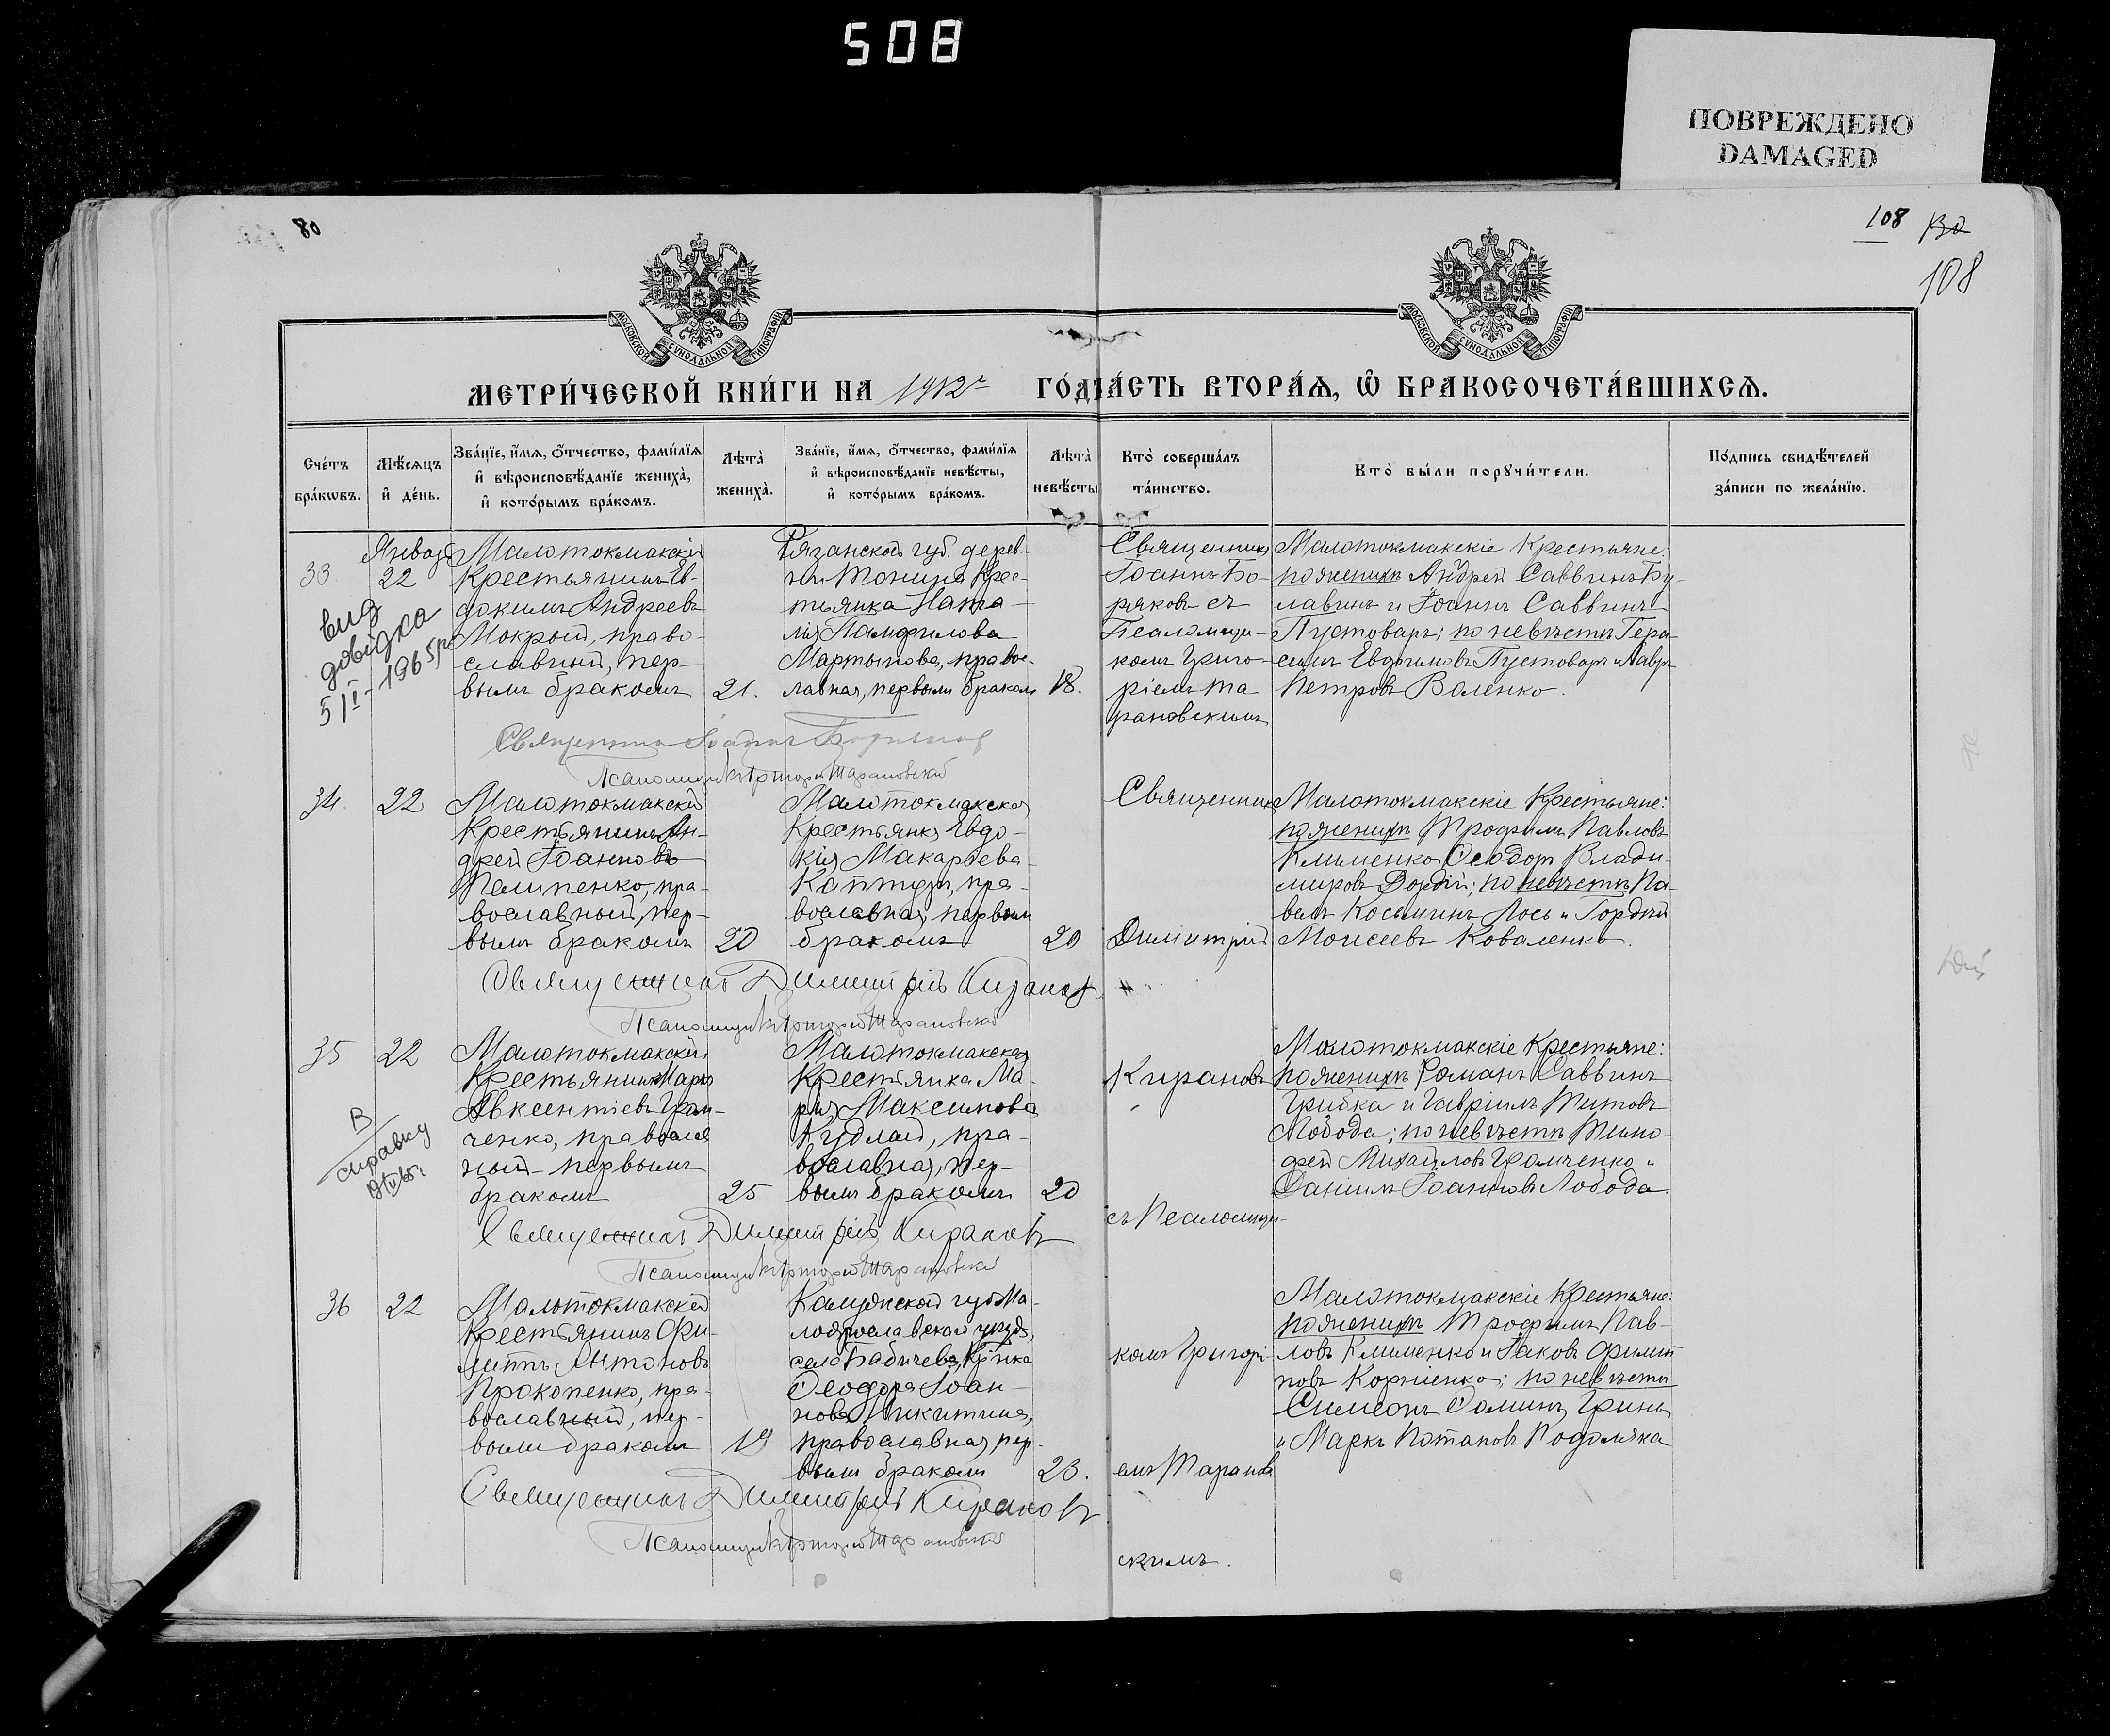 508
ПОВРЕЖДЕНО
DAMAGED
80
108 130
108
МОСКОВСКОЙ СУНОДАЛЬНОЙ ТИПОГРАФІИ
МОСКОВСКОЙ СУНОДАЛЬНОЙ ТИПОГРАФІИ
МЕТРИ́ЧЕСКОЙ КНИ́ГИ НА 1912 г ГО́Д ЧА́СТЬ ВТОРА́Ѧ, Ѽ БРАКОСОЧЕТА́ВШИХСѦ.
Сче́тъ
бра́кωвъ.
Мѣ́сѧцъ
и҆ де́нь.
Зва́нїе, и҆́мѧ, о҆́тчество, фами́лїѧ
и҆ вѣроисповѣ́данїе жениха̀,
и҆ кото́рымъ бра́комъ.
Лѣта̀
жениха̀.
Зва́нїе, и҆́мѧ, о҆́тчество, фами́лїѧ
и҆ вѣроисповѣ́данїе невѣ́сты,
и҆ кото́рымъ бра́комъ.
Лѣта̀
невѣ́сты
Кто̀ соверша́лъ
та́инство.
Кто̀ бы́ли порꙋчи́тели.
По́дпись свидѣ́телей
за́писи по жела́нїю.
33
Январ
22
вид
довідка
5/I-1965р
Малотокмакскій
крестьянинъ Ев-
докимъ Андреевъ
Мокрый, право-
славный, пер-
вымъ бракомъ
21.
Рязанской губ. дерев-
ни Тонина крес-
тьянка Ната-
лія Памфилова
Мартынова, правос-
лавная, первымъ бракомъ
18.
Священникъ
Іоаннъ Бо-
ряковъ съ
Псаломщи-
комъ Григо-
ріемъ Та
рановскимъ
Малотокмакскіе крестьяне:
по женихѣ Андрей Саввинъ Бу-
лавинъ и Іоаннъ Саввинъ
Пустоваръ; по невѣстѣ Гера-
симъ Евфимовъ Пустоваръ и Лавръ
Петровъ Валенко.
Священникъ Іоаннъ
Псаломщикъ Григорій Тарановскій
34.
22
Малотокмакскій
крестьянинъ Ан-
дрей Іоанновъ
Пелипенко, пра-
вославный, пер-
вымъ бракомъ
20
Малотокмакская
крестьянка Евдо-
кія Макаріева
Каптуръ, пра-
вославная, первымъ
бракомъ
20
Священникъ
Димитрій
Малотокмакскіе крестьяне:
по женихѣ Трофимъ Павловъ
Клименко, Ѳеодоръ Влади-
міровъ Дордій; по невѣстѣ Па-
велъ Косьминъ Лось и Гордѣй
Моисеевъ Коваленко.
Священникъ Димитрій Кирановъ
Псаломщикъ Григорій Тарановскій
35
22
В
справку
Малотокмакскій
крестьянинъ Маркъ
Авксентіевъ Грам-
ченко, православ
ный первымъ
бракомъ
25
Малотокмакская
крестьянка Ма-
рія Максимова
Кудлай, пра-
вославная, пер-
вымъ бракомъ
20
Кирановъ
съ Псаломщи-
Малотокмакскіе крестьяне:
по женихѣ Романъ Саввинъ
Грибка и Гавріилъ Титовъ
Лобода; по невѣстѣ Тимо-
фей Михайловъ Громченко и
Даніилъ Іоанновъ Лобода.
Священникъ Димитрій Кирановъ
Псаломщикъ Григорій Тарановскій
36
22
Малотокмакскій
крестьянинъ Фи-
липпъ Антоновъ
Прокопенко, пра-
вославный, пер-
вымъ бракомъ
19
Калужской губ Ма-
лоярославскаго уѣзда,
села Бабичева, кр-нка
Ѳеодора Іоан-
нова Никитина,
православная, пер-
вымъ бракомъ
23.
комъ Григорі-
емъ Таранов
скимъ.
Малотокмакскіе крестьяне:
по женихѣ Трофимъ Пав-
ловъ Клименко и Іаковъ Филип
повъ Корніенко; по невѣстѣ
Симеонъ Ѳоминъ Гринь
и Маркъ Потаповъ Подоляка
Священникъ Димитрій Кирановъ
Псаломщикъ Григорій Тарановскій